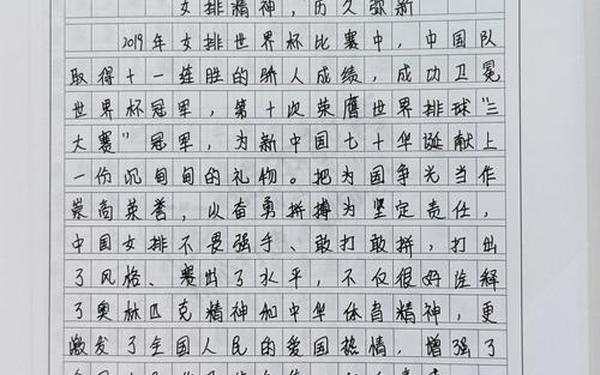 女排精神，历久弥新
2019年女排世界杯比赛中，中国队
取得十一连胜的骄人成绩，成功卫冕
世界杯冠军，第十次荣膺世界排球“三
大赛”冠军，为新中国七十华诞献上
一份沉甸甸的礼物。把为国争光当作
崇高荣誉，以奋勇拼搏为坚定责任，
中国女排不畏强手、敢打敢拼，打出
了风格、赛出了水平，不仅很好诠释
了奥林匹克精神和中华体育精神，更
激发了全国人民的爱国热情，增强了